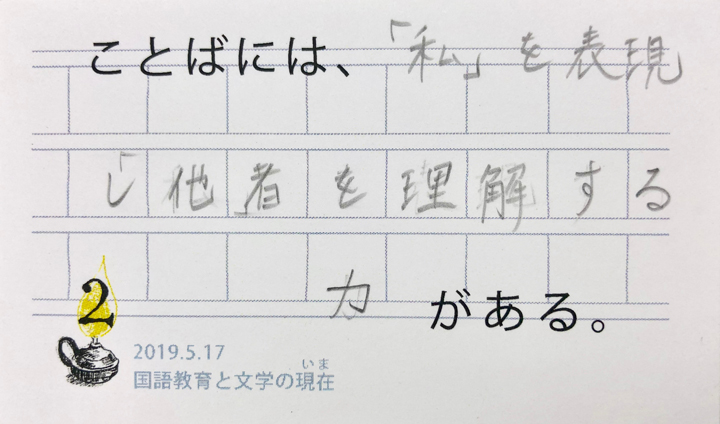 ことばには、「私」を表現
し他者を理解する
力がある。
2
2019.5.17
国語教育と文学の現在
いま